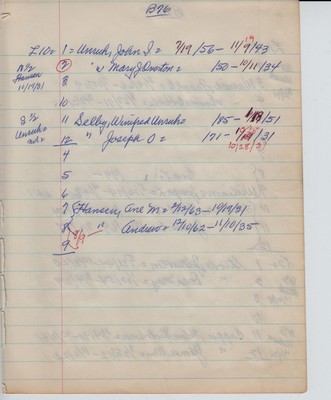 B76
L 10 = 1 = Unruh, John I = 7/19/56 - 11/9/43
N 1/2
Hansen
11/19/31
2 " Mary J Dowton = /50 - 10/11/34
8
10
S 1/2
Unruh
11 Selby, Winifred Unruh = /85 - /51
12 " Joseph O = /71 - /31
10/28/31
4
5
6
7 Hansen, Ane M = 2/12/63 - 10/19/31
8 " Andrew = 12/10/62 - 11/10/35
9